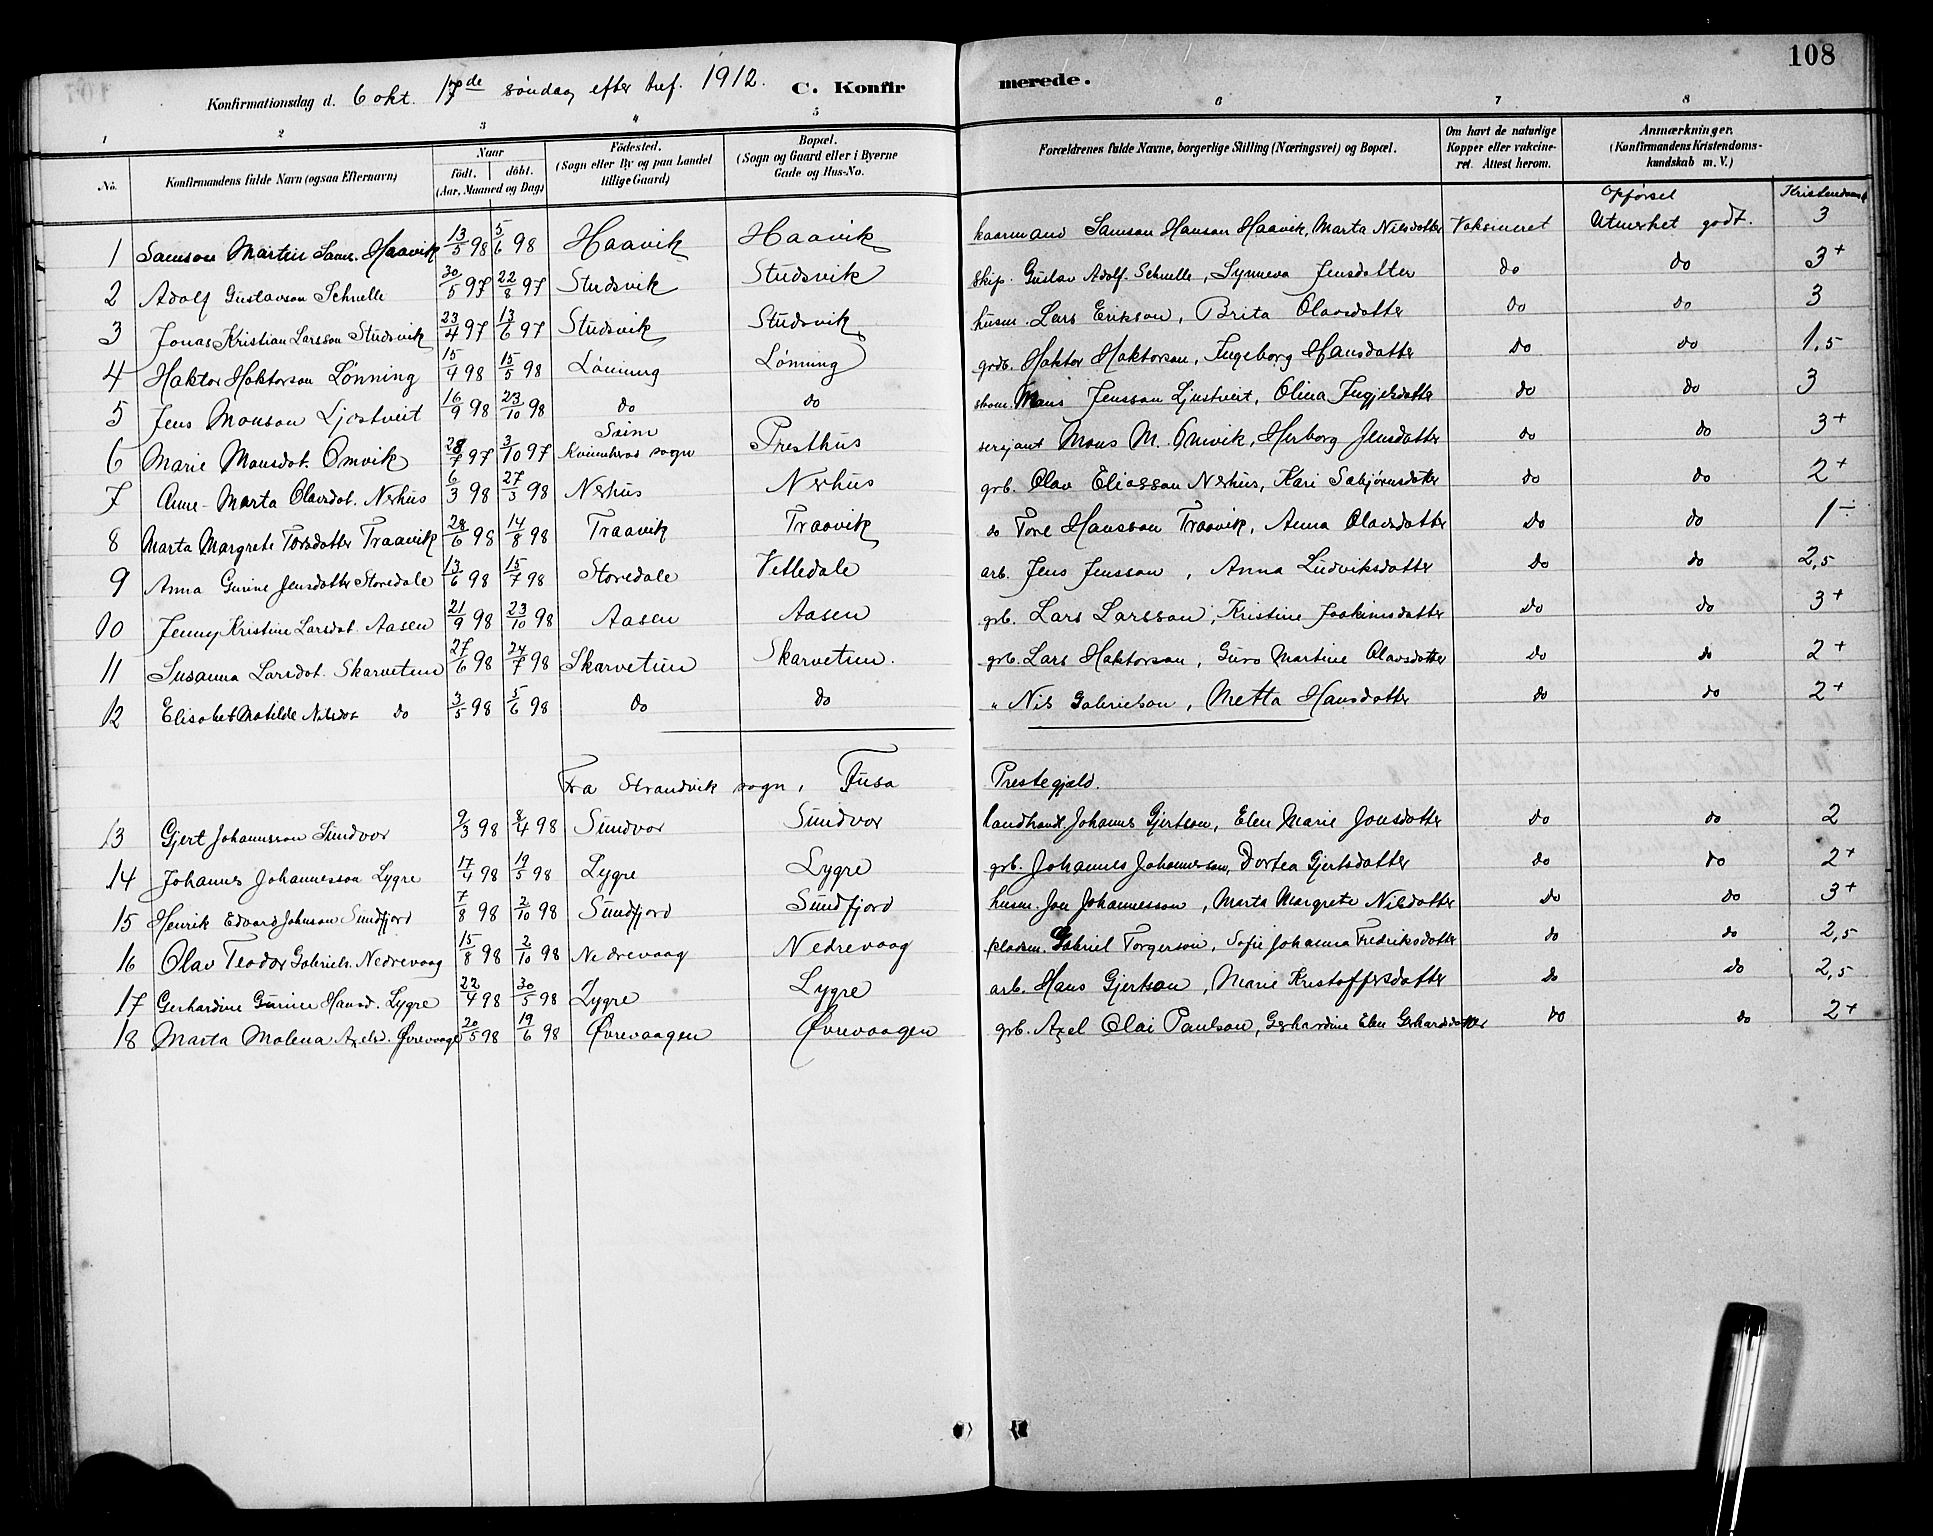 108
Konfirmationsdag d. 6 okt. 17de søndag efter tref. 1912. C. Konfirmerede.
1 2 3 4 5 6 7 8
No. Konfirmandens fulde Navn (ogsaa Efternavn) Naar født. døbt. (Aar, Maaned og Dag) Födested. (Sogn eller By og paa Landet tillige Gaard) Bopæl. (Sogn og Gaard eller i Byerne Gade og Hus-No. Forældrenes fulde Navne, borgerlige Stilling (Næringsvei) og Bopæl. Om havt de naturlige Kopper eller vakcineret. Attest herom. Anmærkninger. (Konfirmandens Kristendomskundskab m. V.)
Opførsel Kristendomsk
1 Samson Martin Sams. Haavik 13/5 98 5/6 98 Haavik Haavik kaarmand Samson Hanson Haavik, Marta Nilsdotter Vaksineret Utmerket godt. 3
2 Adolf Gustavson Schnelle 30/5 97 22/8 97 Studsvik Studsvik Skip. Gustav Adolf Schnelle, Synneva Jensdotter do do 3+
3 Jonas Kristian Larsson Studsvik 23/4 97 13/6 97 Studsvik Studsvik husm. Lars Erikson, Brita Olavsdotter do do 3
4 Haktor Haktorson Lønning 15/4 98 15/5 98 Lønning Lønning grdb. Haktor Haktorson, Ingeborg Hansdotter do do 1,5
5 Jens Monson Ljostveit 16/9 98 23/10 98 do do Mons Jensson Ljostveit, Olina Ingjelsdotter do do 3
6 Marie Monsdot. Omvik 28/7 97 3/10 97 Sunn Kvinnherad sogn Presthus serjant Mons M. Omvik, Herborg Jensdotter do do 3+
7 Anne-Marta Olavsdot. Nerhus 6/3 98 27/3 98 Nerhus Nerhus grb. Olav Eliasson Nerhus, Kari Sabjørnsdotter do do 2+
8 Marta Margrete Torsdotter Traavik 28/6 98 14/8 98 Traavik Traavik do Tore Hansson Traavik, Anna Olavsdotter do do 1÷
9 Anna Gurine Jensdotter Storedale 13/6 98 15/7 98 Storedale Vetledale arb. Jens Jensson, Anna Ludviksdotter do do 2,5
10 Jenny Kristine Larsdot. Aasen 21/9 98 23/10 98 Aasen Aasen grb. Lars Larsson, Kristine Joakimsdotter do do 3+
11 Susanna Larsdot. Skarvetun 27/6 98 24/7 98 Skarvetun Skarvetun. grb. Lars Haktorson, Guro Martine Olavsdotter do do 2+
12 Elisabet Matilde Nilsdot do 3/5 98 5/6 98 do do " Nils Gabrielson, Metta Hansdotter do do 2+
Fra Strandvik sogn, Fusa Prestegjeld.
13 Gjert Johannesson Sundvor 9/3 98 8/4 98 Sundvor Sundvor landhandl. Johannes Gjertson, Elen Marie Jonsdotter do do 2
14 Johannes Johannesson Lygre 17/4 98 19/5 98 Lygre Lygre grb. Johannes Johannesson, Dortea Gjertsdotter do do 2+
15 Henrik Edvard Johnson Sundfjord 7/8 98 2/10 98 Sundfjord Sundfjord husm. Jon Johannesson, Marta Margrete Nilsdotter do do 3+
16 Olav Teodor Gabriels. Nedrevaag 15/8 98 2/10 98 Nedrevaag Nedrevaag pladsm. Gabriel Torgerson, Sofie Johanna Fredriksdotter do do 2,5
17 Gerhardine Gurine Hansd. Lygre 22/4 98 30/5 98 Lygre Lygre arb. Hans Gjertson, Marie Kristoffersdotter do do 2,5
18 Marta Malena Axelsd. Øvrevaage 20/5 98 19/6 98 Øvrevaagen Øvrevaagen grb. Axel Olai Paulson, Gerhardine Elen Gerhardsdotter do do 2+